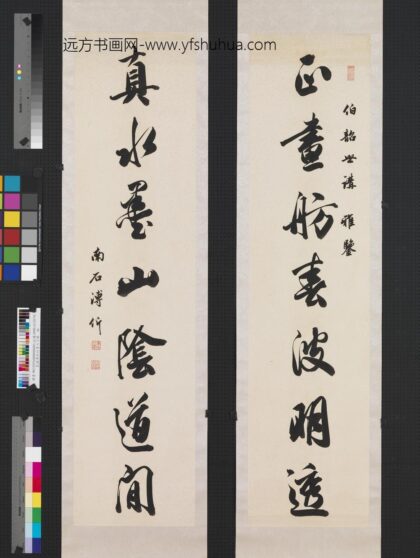 远方书画网-www.yfshuhua.com
伯韶世講 雅鑒
正畫舫春波明透
真水墨山陰道間
南石溥伒